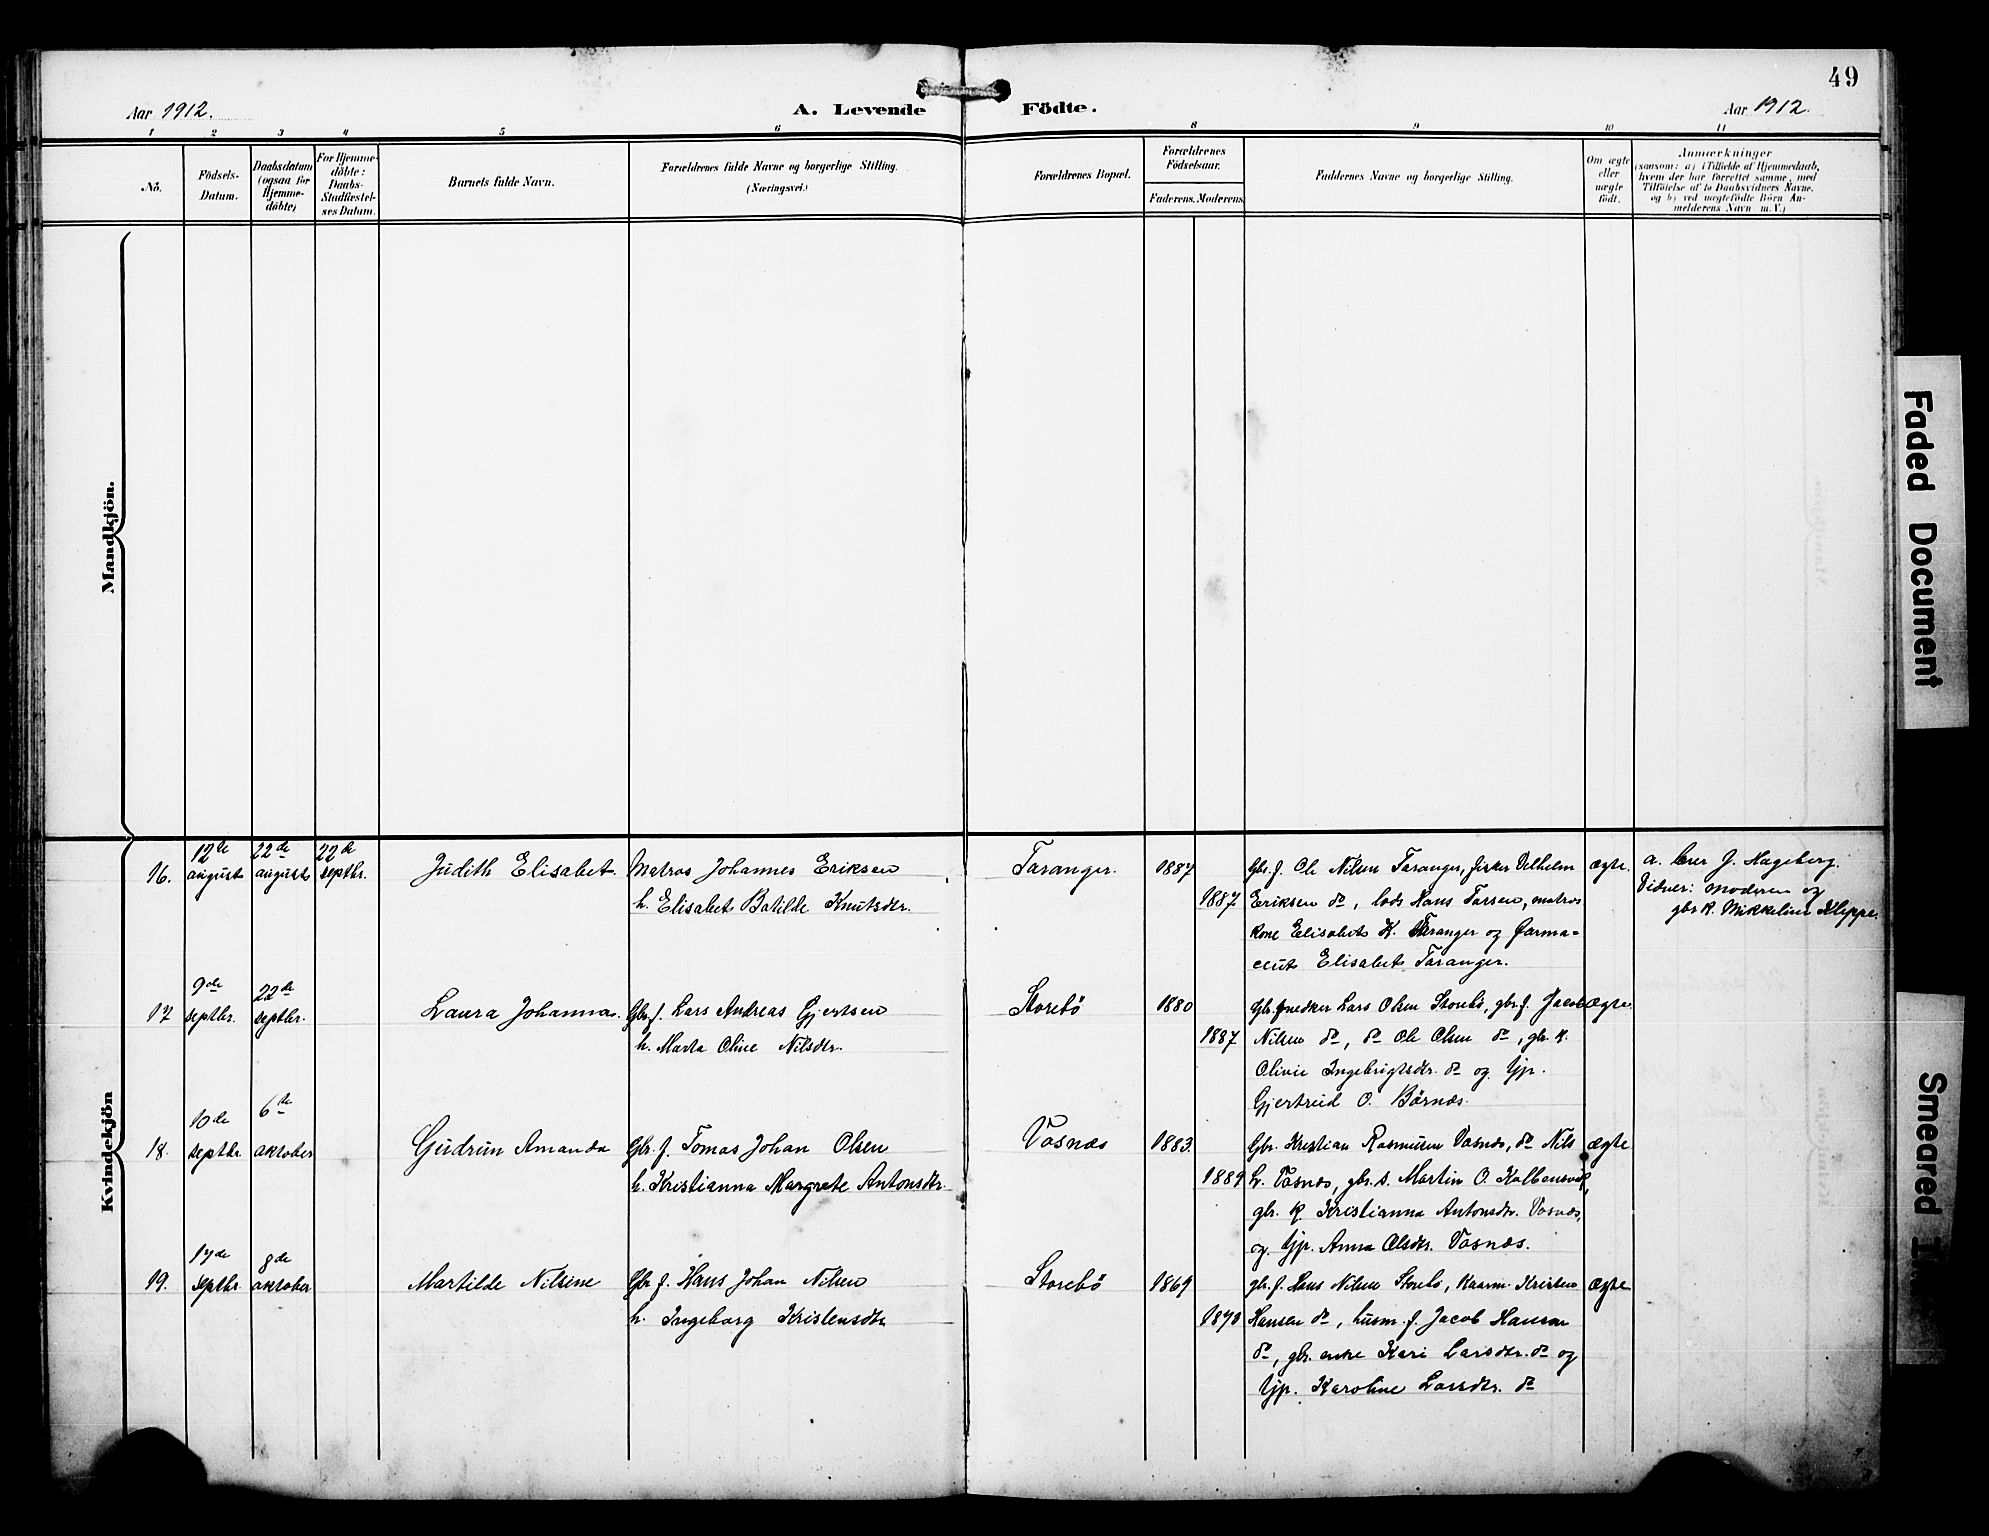 49
Aar 1912.
A. Levende Födte.
Aar 1912.
1 2 3 4 5 6 8 9 10 11
Nö.
Födsels-
Datum.
Daabsdatum
(ogsaa för
Hjemme-
döbte)
For Hjemme-
döbte:
Daabs-
Stadfæstel-
ses Datum.
Barnets fulde Navn.
Forældrenes fulde Navne og borgerlige Stilling.
(Næringsvei.)
Forældrenes Bopæl.
Forældrenes
Födselsaar.
Faderens. Moderens.
Faddernes Navne og borgerlige Stilling.
Om ægte
eller
uægte
födt.
Anmærkninger
(saasom: a) i Tilfælde af Hjemmedaab,
hvem der har forrettet samme, med
Tilföielse af to Daabsvidners Navne.
og b) ved uægtefödte Börn An-
melderens Navn m.V.)
Mandkjön.
Kvindekjön
16.
12te
august
22de
august
22de
septbr.
Judith Elisabet.
Matros Johannes Eriksen
h. Elisabet Batilde Knutsdtr.
Taranger.
1887
1887
Gbr. f. Ole Nilsen Taranger, fisker Vilhelm
Eriksen do, lods Hans Tarsen, matros
kone Elisabet K. Taranger og farma-
ceut Elisabet Taranger.
Ægte.
a. lærer J. Hageberg.
Vidner: moderen og
gbr k. Mikkeline Kleppe.
17
9de
septbr.
22de
septbr.
Laura Johanna.
Gbr. f. Lars Andreas Gjertsen
h. Marta Oline Nilsdtr.
Storebö
1880
1887
Gbr. snedker Lars Olsen Storebö, gbr. f. Jacob
Nilsen do, do Ole Olsen do, gbr. k.
Olivie Ingebrigtsdtr. do og Tjp.
Gjertrud O. Börnæs.
Ægte.
18.
10de
septbr.
6te
oktober
Gudrun Amanda
Gbr. f. Tomas Johan Olsen
h. Kristianna Margrete Antonsdtr.
Vosnæs
1883.
1889
Gbr. Kristian Rasmusen Vosnæs, do Nils
L. Vosnæs, gbr. s. Martin O. Kolbensvik,
gbr. k. Kristianna Antonsdtr. Vosnæs,
og Tjp. Anna Olsdtr. Vosnæs.
Ægte
19.
17de
septbr.
8de
oktober
Martilde Nilsine
Gbr f. Hans Johan Nilsen
h. Ingeborg Kristensdtr
Storebö
1869
1870
gbr. f. Hans Nilsen Storebö, Kaarm. Kristen
Hansen do, husm. f. Jacob Hansen
do, gbr. enke Kari Larsdtr. do og
Tjp. Karoline Larsdtr. do
Ægte
Faded Document
Smeared I